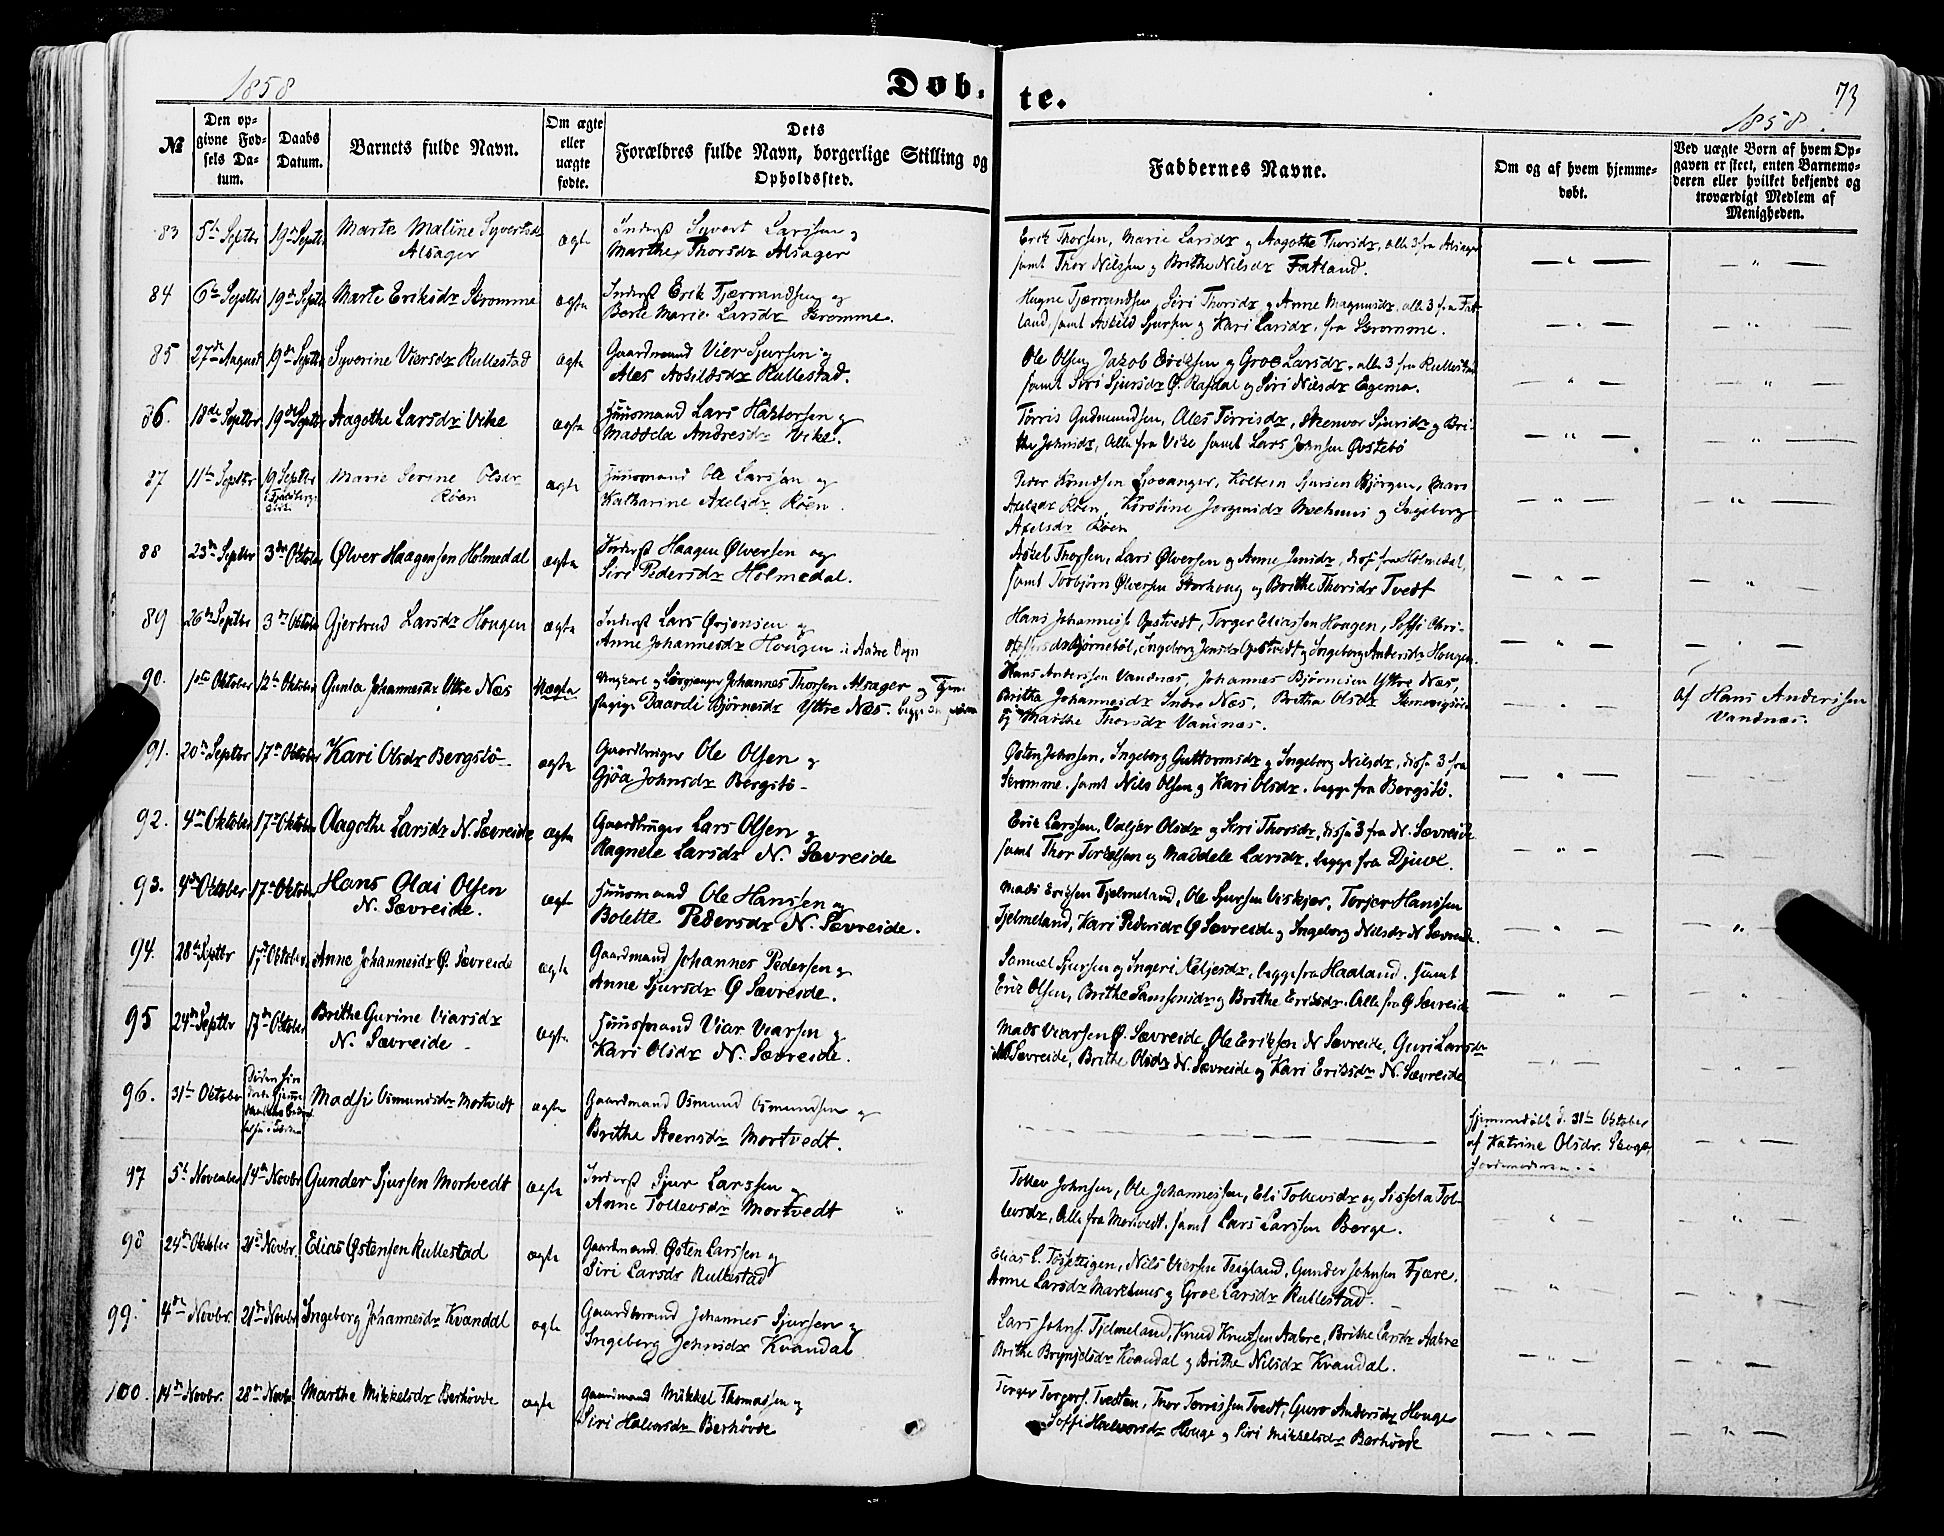 1858
Døb. te.
73
1858.
№
Den opgivne Fødsels Datum.
Daabs Datum.
Barnets fulde Navn.
Om ægte eller uægte fødte.
Dets Forældres fulde Navn, borgerlige Stilling og Opholdssted.
Faddernes Navne.
Om og af hvem hjemmedøbt.
Ved uægte Børn af hvem Opgaven er skeet, enten Barnemoderen eller hvilket bekjendt og troværdigt Medlem af Menigheden.
83 5te Septbr 19de Septbr Marte Maline Syvertsdr Alsager ægte
Inderst Syvert Larssen og
Marthe Thorsdr Alsager
Erik Thorsen, Marie Larsdr og Aagothe Thorsdr, alle 3 fra Alsager
samt Thor Nilssen og Brithe Nilsdr Fatland.
84 6te Septbr 19de Septbr Marte Eriksdr Skromme ægte
Inderst Erik Tjærrandsen og
Berte Marie Larsdr Skromme.
Hugne Tjærrandsen, Siri Thorsdr og Anne Magnusdr, alle 3 fra Fatland,
samt Askild Sjursen og Kari Larsdr, fra Skromme.
85 27de August 19de Septbr Syverine Viersdr Rullestad ægte
Gaardmand Vier Sjursen og
Ales Askildsdr Rullestad.
Ole Olsen, Jakob Eriksen og Groe Larsdr, alle 3 fra Rullestad
samt Siri Sjursdr Ø. Rafdal og Siri Nilsdr Egema.
86. 18de Septbr 19de Septbr Aagothe Larsdr Vike ægte
Huusmand Lars Haktorsen og
Maddela Andresdr Vike.
Tørris Gudmundsen, Ales Tørrisdr, Steenvor Sjursdr og Bri-
the Johnsdr, Alle fra Vike samt Lars Johnsen Østebø
87 11te Septbr 19 Septbr Marie Serine Olsdr Røen ægte
Huusmand Ole Larssen og
Katharine Axelsdr Røen.
Peder Knudsen Sjovanger, Kolbein Sjursen Bjørgen, Mari
Axelsdr Røen, Kirstine Jørgensdr Moehuus og Ingeborg
Axelsdr Røen
88 23de Septbr 3die Oktober Ølver Haagensen Holmedal ægte
Inderst Haagen Ølversen og
Siri Pedersdr Holmedal.
Askel Thorsen, Lars Ølversen og Anne Jensdr, diss fra Holmedal,
samt Torbjørn Ølversen Storhoug og Brithe Thorsdr Tvedt
89 26de Septbr 3die Oktober Gjertrud Larsdr Hougen ægte
Inderst Lars Ørjensen og
Anne Johannesdr Hougen i Aabre Sogn
Hans Johanness. Opstvedt, Torger Eliassen Hougen, Soffi Chri-
stoffersdr Bjørnebøl, Ingeborg Jensdr Opstvedt og Ingeborg Andersdr Hougen.
90. 10de Oktober 12te Oktober Gunla Johannesdr Ytre Næs Uægte
Ungkarl og Johannes Thorsen Alsager og
Paarde Bjørnesdr Yttre Næs.
Hans Anderssen Vandnæs, Johannes Bjørnsen Yttre Næs,
Britta Johannesdr Indre Næs, Britha Olsdr
og Marthe Thorsdr Vandnæs.
af Hans Anderssen
Vandnæs.
91. 20de Septbr 17de Oktober Kari Olsdr Bergstø ægte
Gaardbruger Ole Olsen og
Gjøa Johnsdr Bergstø
Østen Johnsen, Ingeborg Guttormsdr og Ingeborg Nilsdr, disse 3 fra
Skromme. samt Nils Olsen og Kari Olsdr. begge fra Bergstø.
92. 4de Oktober 17de Oktober Aagothe Larsdr N. Sævreide ægte
Gaardbruger Lars Olsen og
Ragnele Larsdr N. Sævreide
Erik Larssen, Valjer Olsdr og Siri Thorsdr, disse 3 fra N. Sævreide
samt Thor Torkelsen og Maddele Larsdr, begge fra Djuve.
93. 4de Oktober 17de Oktober Hans Olai Olsen N. Sævreide. ægte
Huusmand Ole Hanssen og
Bolette Pedersdr N. Sævreide.
Mads Erikssen Tjelmeland, Ole Sjursen Viskjær, Torjer Hanssen
Tjelmeland, Kari Pedersdr Ø Sævreide og Ingeborg Nilsdr N Sævreide.
94. 28de Septbr 17de Oktober Anne Johannesdr Ø. Sævreide ægte
Gaardmand Johannes Pedersen og
Anne Sjursdr Ø Sævreide.
Samuel Sjursen og Ingeri Keljesdr, begge fra Haaland. samt
Erik Olsen, Brithe Samsonsdr og Brithe Eriksdr. Alle fra Ø Sævreide
95 24de Septbr 17de Oktober Brithe Gurine Viarsdr N. Sævreide ægte
Huusmand Viar Viarsen og
Kari Olsdr N. Sævreide.
Mads Viarsen Ø. Sævreide, Ole Eriksen N Sævreide, Guri Larsdr
N Sævreide, Brithe Olsdr N. Sævreide og Kari Eriksdr N. Sævreide
96. 31te Oktober Madsi Osmundsdr Mortvedt ægte
Gaardmand Osmund Osmundsen og
Brithe Steensdr Mortvedt.
Hjemmedøbt d. 31te Oktober
af Katrine Olsdr.
Jordemoderen
97 5te November 14de Novbr Gunder Sjursen Mortvedt ægte
Inderst Sjur Larssen og
Anne Tollevsdr Mortvedt
Tollev Johnsen, Ole Johannessen, Eli Tollevsdr og Sissela Tol-
levsdr, Alle fra Mortvedt. samt Lars Larssen Berge.
98 24de Oktober 21de Novbr. Elias Østensen Rullestad ægte
Gaardmand Østen Larssen og
Siri Larsdr Rullestad
Elias L. Tøsettigen, Nils Viersen Teigland, Gunder Johnsen Fjære,
Anne Larsdr Markhuus og Groe Larsdr Rullestad.
99. 4de Novbr. 21de Novbr Ingeborg Johannesdr Kvandal ægte
Gaardbrand Johannes Sjursen og
Ingeborg Johnsdr Kvandal
Lars Johns. Tjelmeland, Knud Knudsen Aabre, Brithe Larsdr Aabre
Brithe Brynjelsdr Kvandal og Brithe Nilsdr Kvandal.
100. 14de Novbr. 28de Novbr Marthe Mikkelsdr Berhøvde ægte
Gaardmand Mikkel Thomassen og
Siri Halvorsdr Berhøvde
Torger Torgers. Tvedten, Thor Tørrissen Tvedt, Guro Andersdr Houge
Soffi Halvorsdr Houge og Siri Mikkelsdr Berhøvde